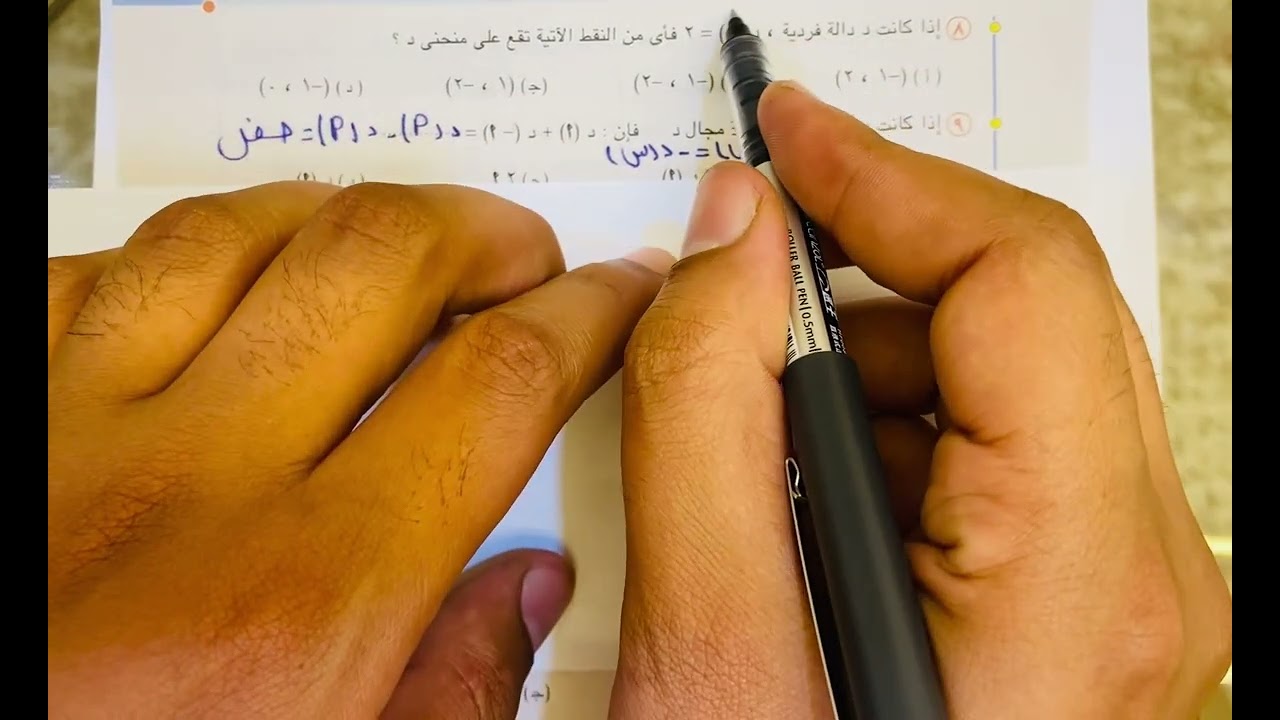 ٨ إذا كانت د دالة فردية ، ) = ٢ فأى من النقط الآتية تقع على منحنى د ؟
( أ ) (−١ ، ٢) ) (−١ ، −٢) (جـ) (١ ، −٢) ( د ) (−١ ، ٠)
٩ إذا كانت مجال د فإن : د (٩) + د (−٩) = د(٩) - د(٩) = صفر
= - د(س)
(٩) (جـ) ٢ ٩ ( د ) د (٩)
ROLLER BALL PEN 0.5mm
(جـ)